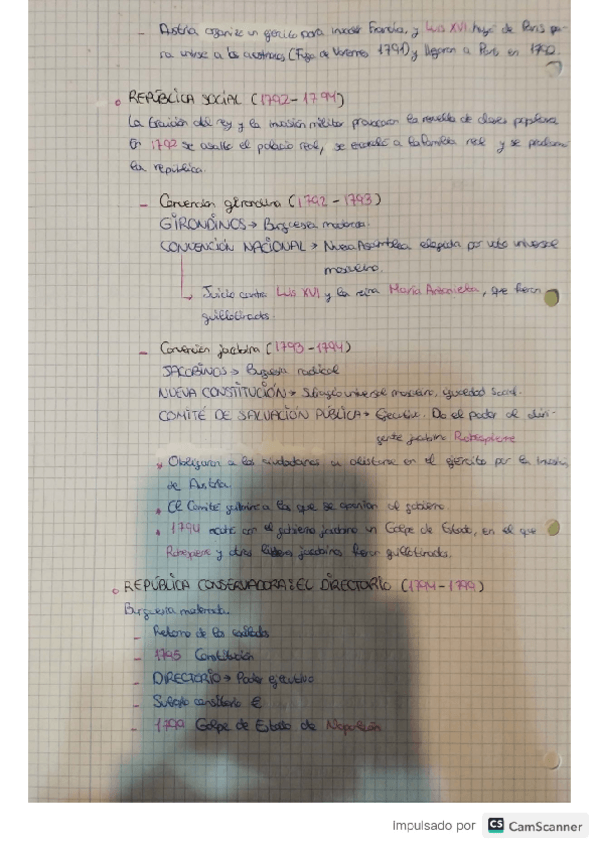 - Austria organiza un ejército para invadir Francia, y Luis XVI huyó de París pa-
ra unirse a los austriacos (Fuga de Varennes 1791) y llegaron a París en 1792.
REPÚBLICA SOCIAL (1792-1794)
La traición del rey y la invasión militar provocaron la revuelta de clases populares
En 1792 se asaltó el palacio real, se encarceló a la familia real y se proclamó
la república.
- Convención girondina (1792-1793)
GIRONDINOS → Burguesía moderada.
CONVENCIÓN NACIONAL → Nueva Asamblea elegida por voto universal
masculino.
↳ Juicio contra Luis XVI y la reina María Antonieta, que fueron
guillotinados.
- Convención jacobina (1793-1794)
JACOBINOS → Burguesía radical
NUEVA CONSTITUCIÓN → Sufragio universal masculino, igualdad social.
COMITÉ DE SALVACIÓN PÚBLICA → Ejecutivo. Da el poder al diri-
gente jacobino Robespierre
Obligaron a los ciudadanos a alistarse en el ejército por la invasión
de Austria.
El Comité guillotina a los que se oponían al gobierno.
1794 acaba con el gobierno jacobino un Golpe de Estado, en el que
Robespierre y otros líderes jacobinos fueron guillotinados.
REPÚBLICA CONSERVADORA: EL DIRECTORIO (1794-1799)
Burguesía moderada.
- Retorno de los exiliados
- 1795 Constitución
- DIRECTORIO → Poder ejecutivo
- Sufragio censitario €
- 1799 Golpe de Estado de Napoleón
Impulsado por CS CamScanner